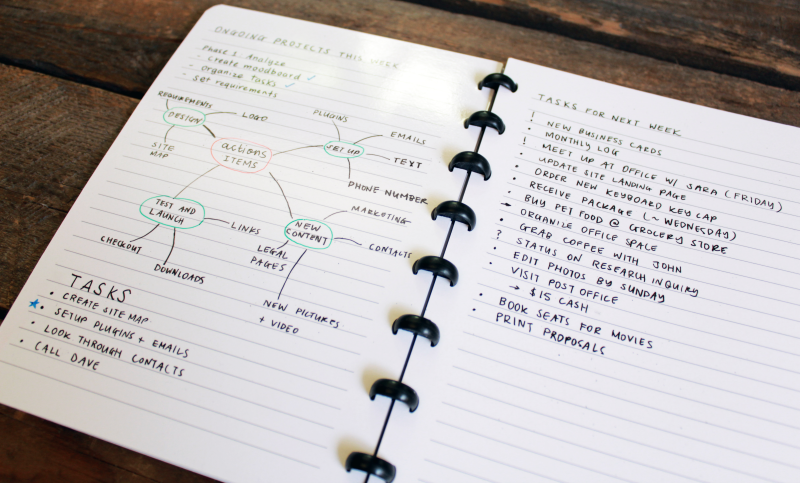 ONGOING PROJECTS THIS WEEK
Phase 1 Analyze
- Create moodboard ✓
- Organize Tasks ✓
- Set requirements
REQUIREMENTS
DESIGN
LOGO
SITE
MAP
actions
ITEMS
PLUGINS
SET UP
EMAILS
TEXT
PHONE NUMBER
TEST AND
LAUNCH
LINKS
CHECKOUT
DOWNLOADS
NEW
CONTENT
MARKETING
CONTACTS
LEGAL
PAGES
NEW PICTURES
+ VIDEO
TASKS
• CREATE SITE MAP
★• SETUP PLUGINS + EMAILS
• LOOK THROUGH CONTACTS
• CALL DAVE
TASKS FOR NEXT WEEK
! NEW BUSINESS CARDS
• MONTHLY LOG
! MEET UP AT OFFICE W/ SARA (FRIDAY)
• UPDATE SITE LANDING PAGE
• ORDER NEW KEYBOARD KEY CAP
• RECEIVE PACKAGE (~ WEDNESDAY)
→ BUY PET FOOD @ GROCERY STORE
• ORGANIZE OFFICE SPACE
• GRAB COFFEE WITH JOHN
? STATUS ON RESEARCH INQUIRY
• EDIT PHOTOS BY SUNDAY
• VISIT POST OFFICE
→ $15 CASH
• BOOK SEATS FOR MOVIES
• PRINT PROPOSALS